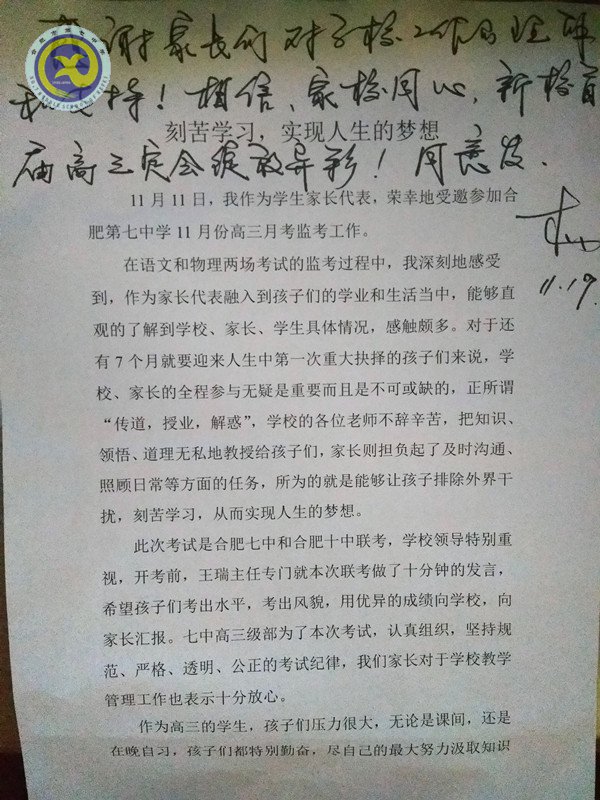 感谢家长们对学校工作的理解
和支持！相信，家校同心，新校首
届高三定会绽放异彩！同意发.
11.19.
刻苦学习，实现人生的梦想
11月11日，我作为学生家长代表，荣幸地受邀参加合
肥第七中学11月份高三月考监考工作。
在语文和物理两场考试的监考过程中，我深刻地感受
到，作为家长代表融入到孩子们的学业和生活当中，能够直
观的了解到学校、家长、学生具体情况，感触颇多。对于还
有7个月就要迎来人生中第一次重大抉择的孩子们来说，学
校、家长的全程参与无疑是重要而且是不可或缺的，正所谓
“传道，授业，解惑”，学校的各位老师不辞辛苦，把知识、
领悟、道理无私地教授给孩子们，家长则担负起了及时沟通、
照顾日常等方面的任务，所为的就是能够让孩子排除外界干
扰，刻苦学习，从而实现人生的梦想。
此次考试是合肥七中和合肥十中联考，学校领导特别重
视，开考前，王瑞主任专门就本次联考做了十分钟的发言，
希望孩子们考出水平，考出风貌，用优异的成绩向学校，向
家长汇报。七中高三级部为了本次考试，认真组织，坚持规
范、严格、透明、公正的考试纪律，我们家长对于学校教学
管理工作也表示十分放心。
作为高三的学生，孩子们压力很大，无论是课间，还是
在晚自习，孩子们都特别勤奋，尽自己的最大努力汲取知识